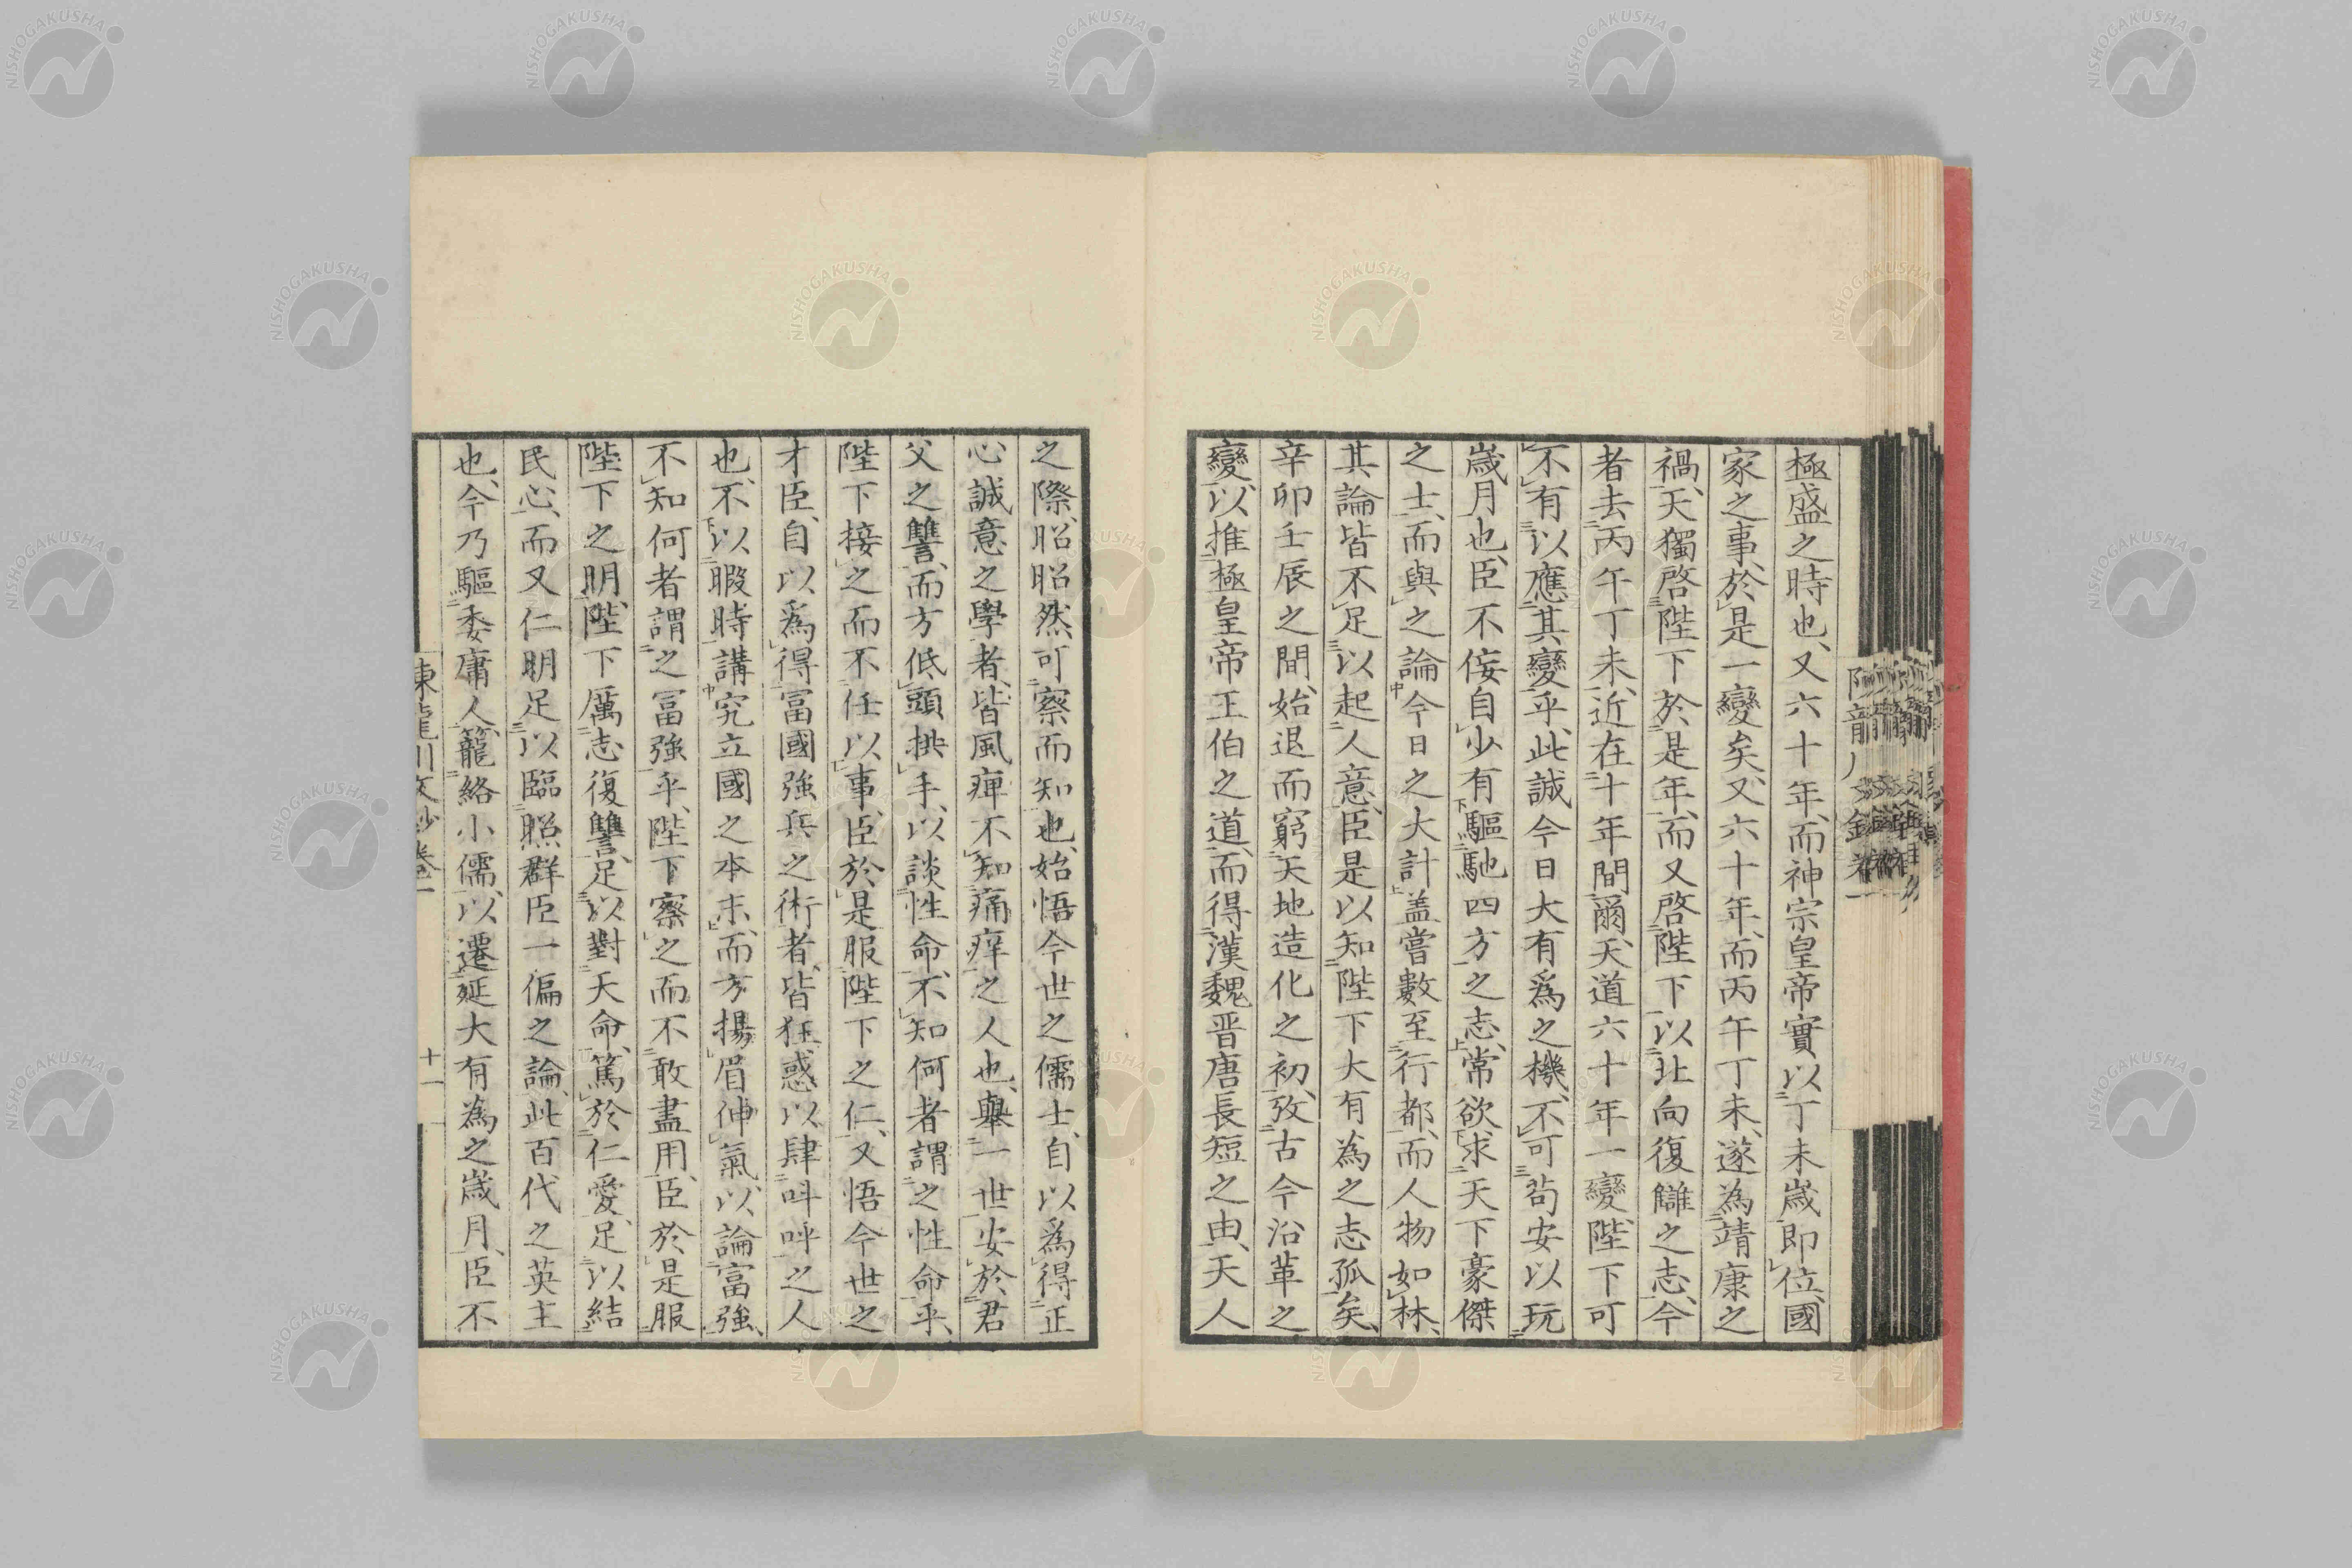 極盛之時也、又六十年、而神宗皇帝實以丁未歲即位、國
家之事、於是一變矣、又六十年、而丙午丁未、遂為靖康之
禍、天獨啓陛下於是年、而又啓陛下以北向復讎之志、今
者去丙午丁未、近在十年間爾、天道六十年一變、陛下可
不有以應其變乎、此誠今日大有爲之機、不可苟安以玩
歲月也、臣不佞自少有驅馳四方之志、常欲求天下豪傑
之士、而與之論今日之大計、盖嘗數至行都、而人物如林、
其論皆不足以起人意、臣是以知陛下大有為之志孤矣、
辛卯壬辰之間、始退而窮天地造化之初、攷古今沿革之
變、以推極皇帝王伯之道、而得漢魏晋唐長短之由、天人
之際、昭昭然可察而知也、始悟今世之儒士、自以爲得正
心誠意之學者、皆風痺不知痛痒之人也、舉一世安於君
父之讐、而方低頭拱手、以談性命、不知何者謂之性命乎、
陛下接之而不任以事、臣於是服陛下之仁、又悟今世之
才臣、自以爲得富國強兵之術者、皆狂惑以肆叫呼之人
也、不以暇時講究立國之本末、而方揚眉伸氣、以論富強、
不知何者謂之冨強乎、陛下察之而不敢盡用、臣於是服
陛下之明、陛下厲志復讐、足以對天命、篤於仁愛、足以結
民心、而又仁明足以臨照群臣一偏之論、此百代之英主
也、今乃驅委庸人、籠絡小儒、以遷延大有為之歲月、臣不
陳龍川文鈔 卷一
十一
NISHOGAKUSHA